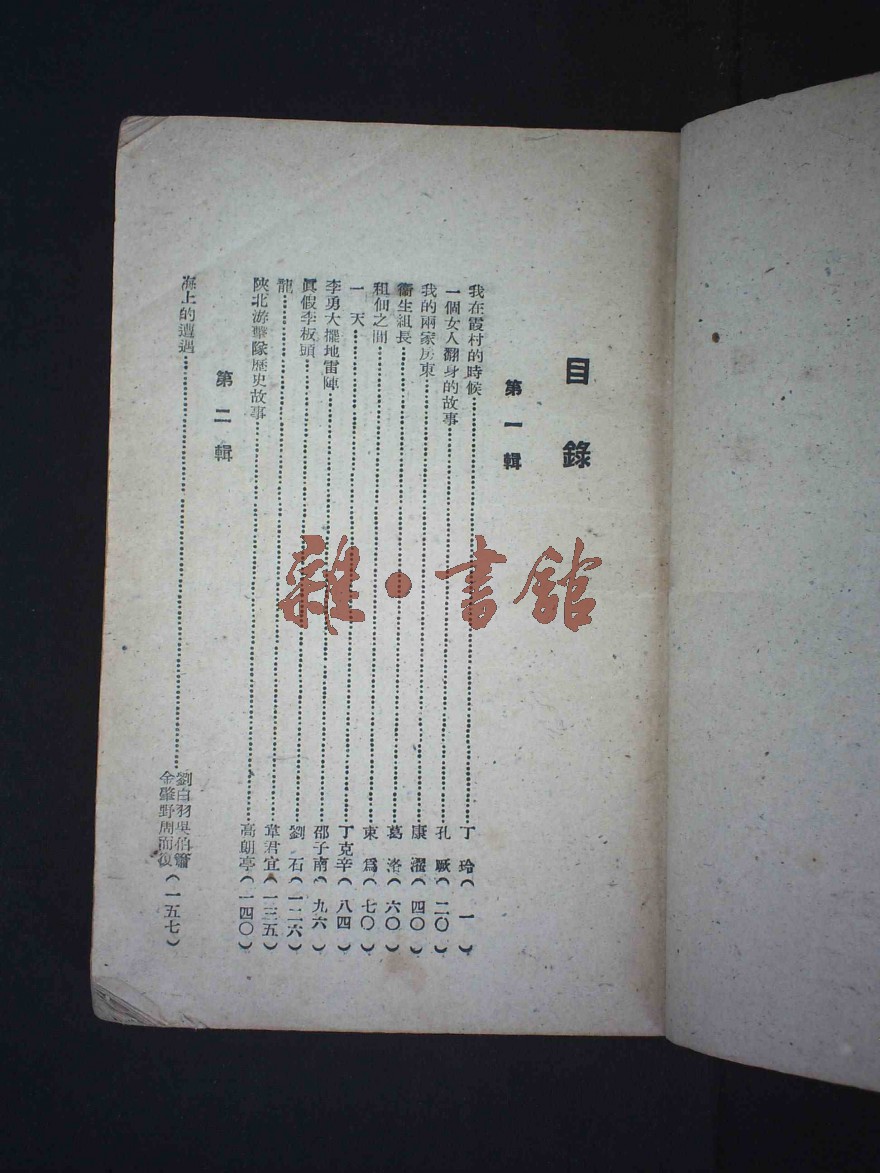 目錄
第一輯
我在霞村的時候 丁玲(一)
一個女人翻身的故事 孔厥(二〇)
我的兩家房東 康濯(四〇)
衞生組長 葛洛(六〇)
租佃之間 束爲(七〇)
一天 丁克辛(八四)
李勇大擺地雷陣 邵子南(九六)
眞假李板頭 劉石(一二六)
龍 韋君宜(一三五)
陝北游擊隊歷史故事 高朗亭(一四〇)
第二輯
海上的遭遇 劉白羽吳伯簫金肇野周而復(一五七)
雜·書館